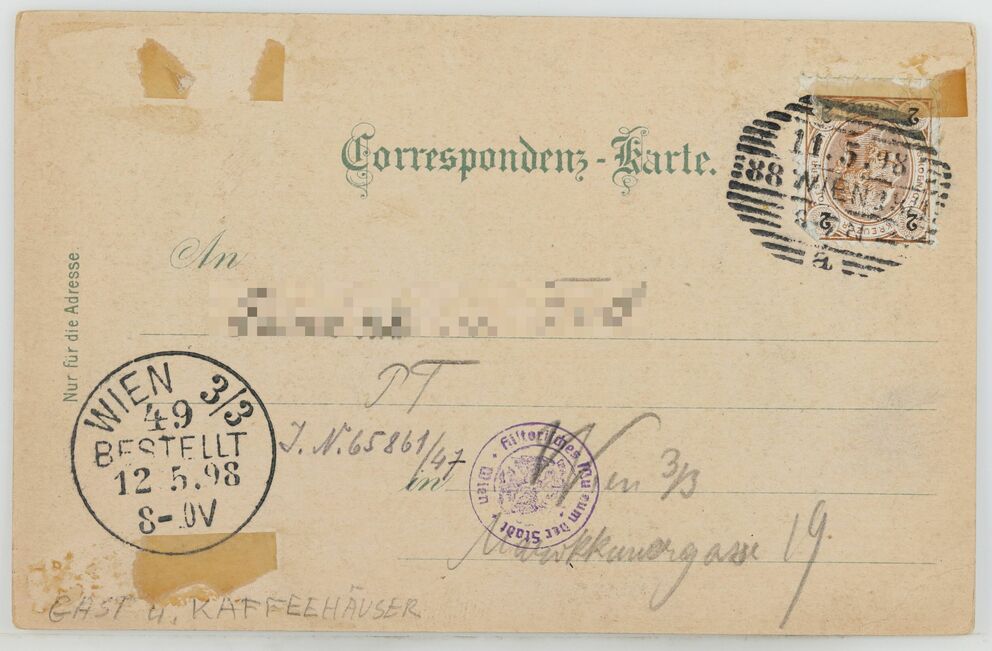 Correspondenz-Karte.
2
11.5.98
88 WIEN
2 KREUZER 2
a
An
Nur für die Adresse.
PT
WIEN 3/3
49
BESTELLT
12 5.98
8-
J. N. 65861/47
Historisches Museum der Stadt Wien
in Wien 3/3
Marokkanergasse 19.
GAST u. KAFFEEHÄUSER